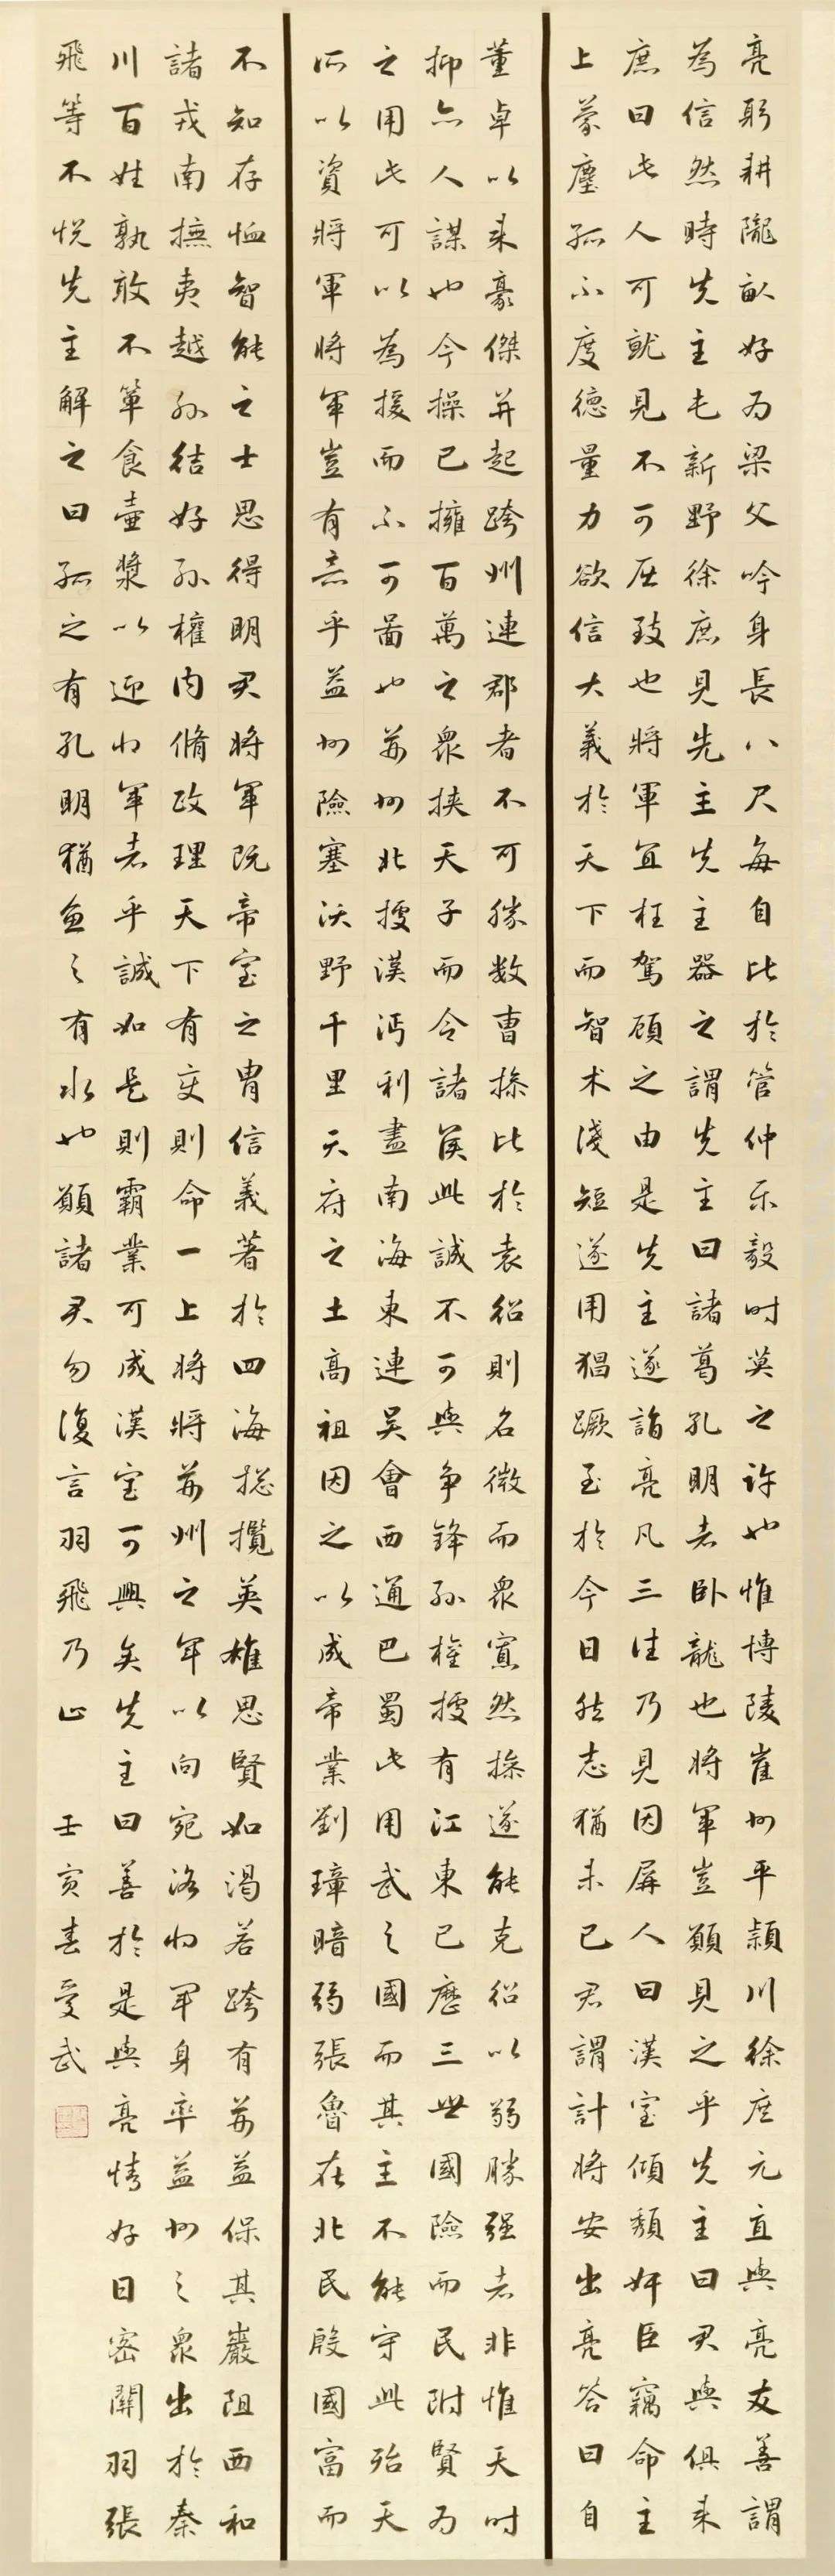 亮躬耕隴畝好為梁父吟身長八尺每自比於管仲樂毅時莫之許也惟博陵崔州平潁川徐庶元直與亮友善謂
為信然時先主屯新野徐庶見先主先主器之謂先主曰諸葛孔明者臥龍也將軍豈願見之乎先主曰君與俱來
庶曰此人可就見不可屈致也將軍宜枉駕顧之由是先主遂詣亮凡三往乃見因屏人曰漢室傾頹奸臣竊命主
上蒙塵孤不度德量力欲信大義於天下而智术淺短遂用猖蹶至於今日然志猶未已君謂計將安出亮答曰自
董卓以來豪傑并起跨州連郡者不可勝數曹操比於袁紹則名微而眾寡然操遂能克紹以弱勝強者非惟天時
抑亦人謀也今操已擁百萬之眾挾天子而令諸侯此誠不可與爭鋒孫權據有江東已歷三世國險而民附賢為
之用此可以為援而不可圖也荊州北據漢沔利盡南海東連吳會西通巴蜀此用武之國而其主不能守此殆天
所以資將軍將軍豈有意乎益州險塞沃野千里天府之土高祖因之以成帝業劉璋暗弱張魯在北民殷國富而
不知存恤智能之士思得明君將軍既帝室之胄信義著於四海総攬英雄思賢如渴若跨有荊益保其巖阻西和
諸戎南撫夷越外結好孫權內脩政理天下有变則命一上將將荊州之軍以向宛洛將軍身率益州之眾出於秦
川百姓孰敢不簞食壺漿以迎將軍者乎誠如是則霸業可成漢室可興矣先主曰善於是與亮情好日密關羽張
飛等不悅先主解之曰孤之有孔明猶魚之有水也願諸君勿復言羽飛乃止 壬寅春受武